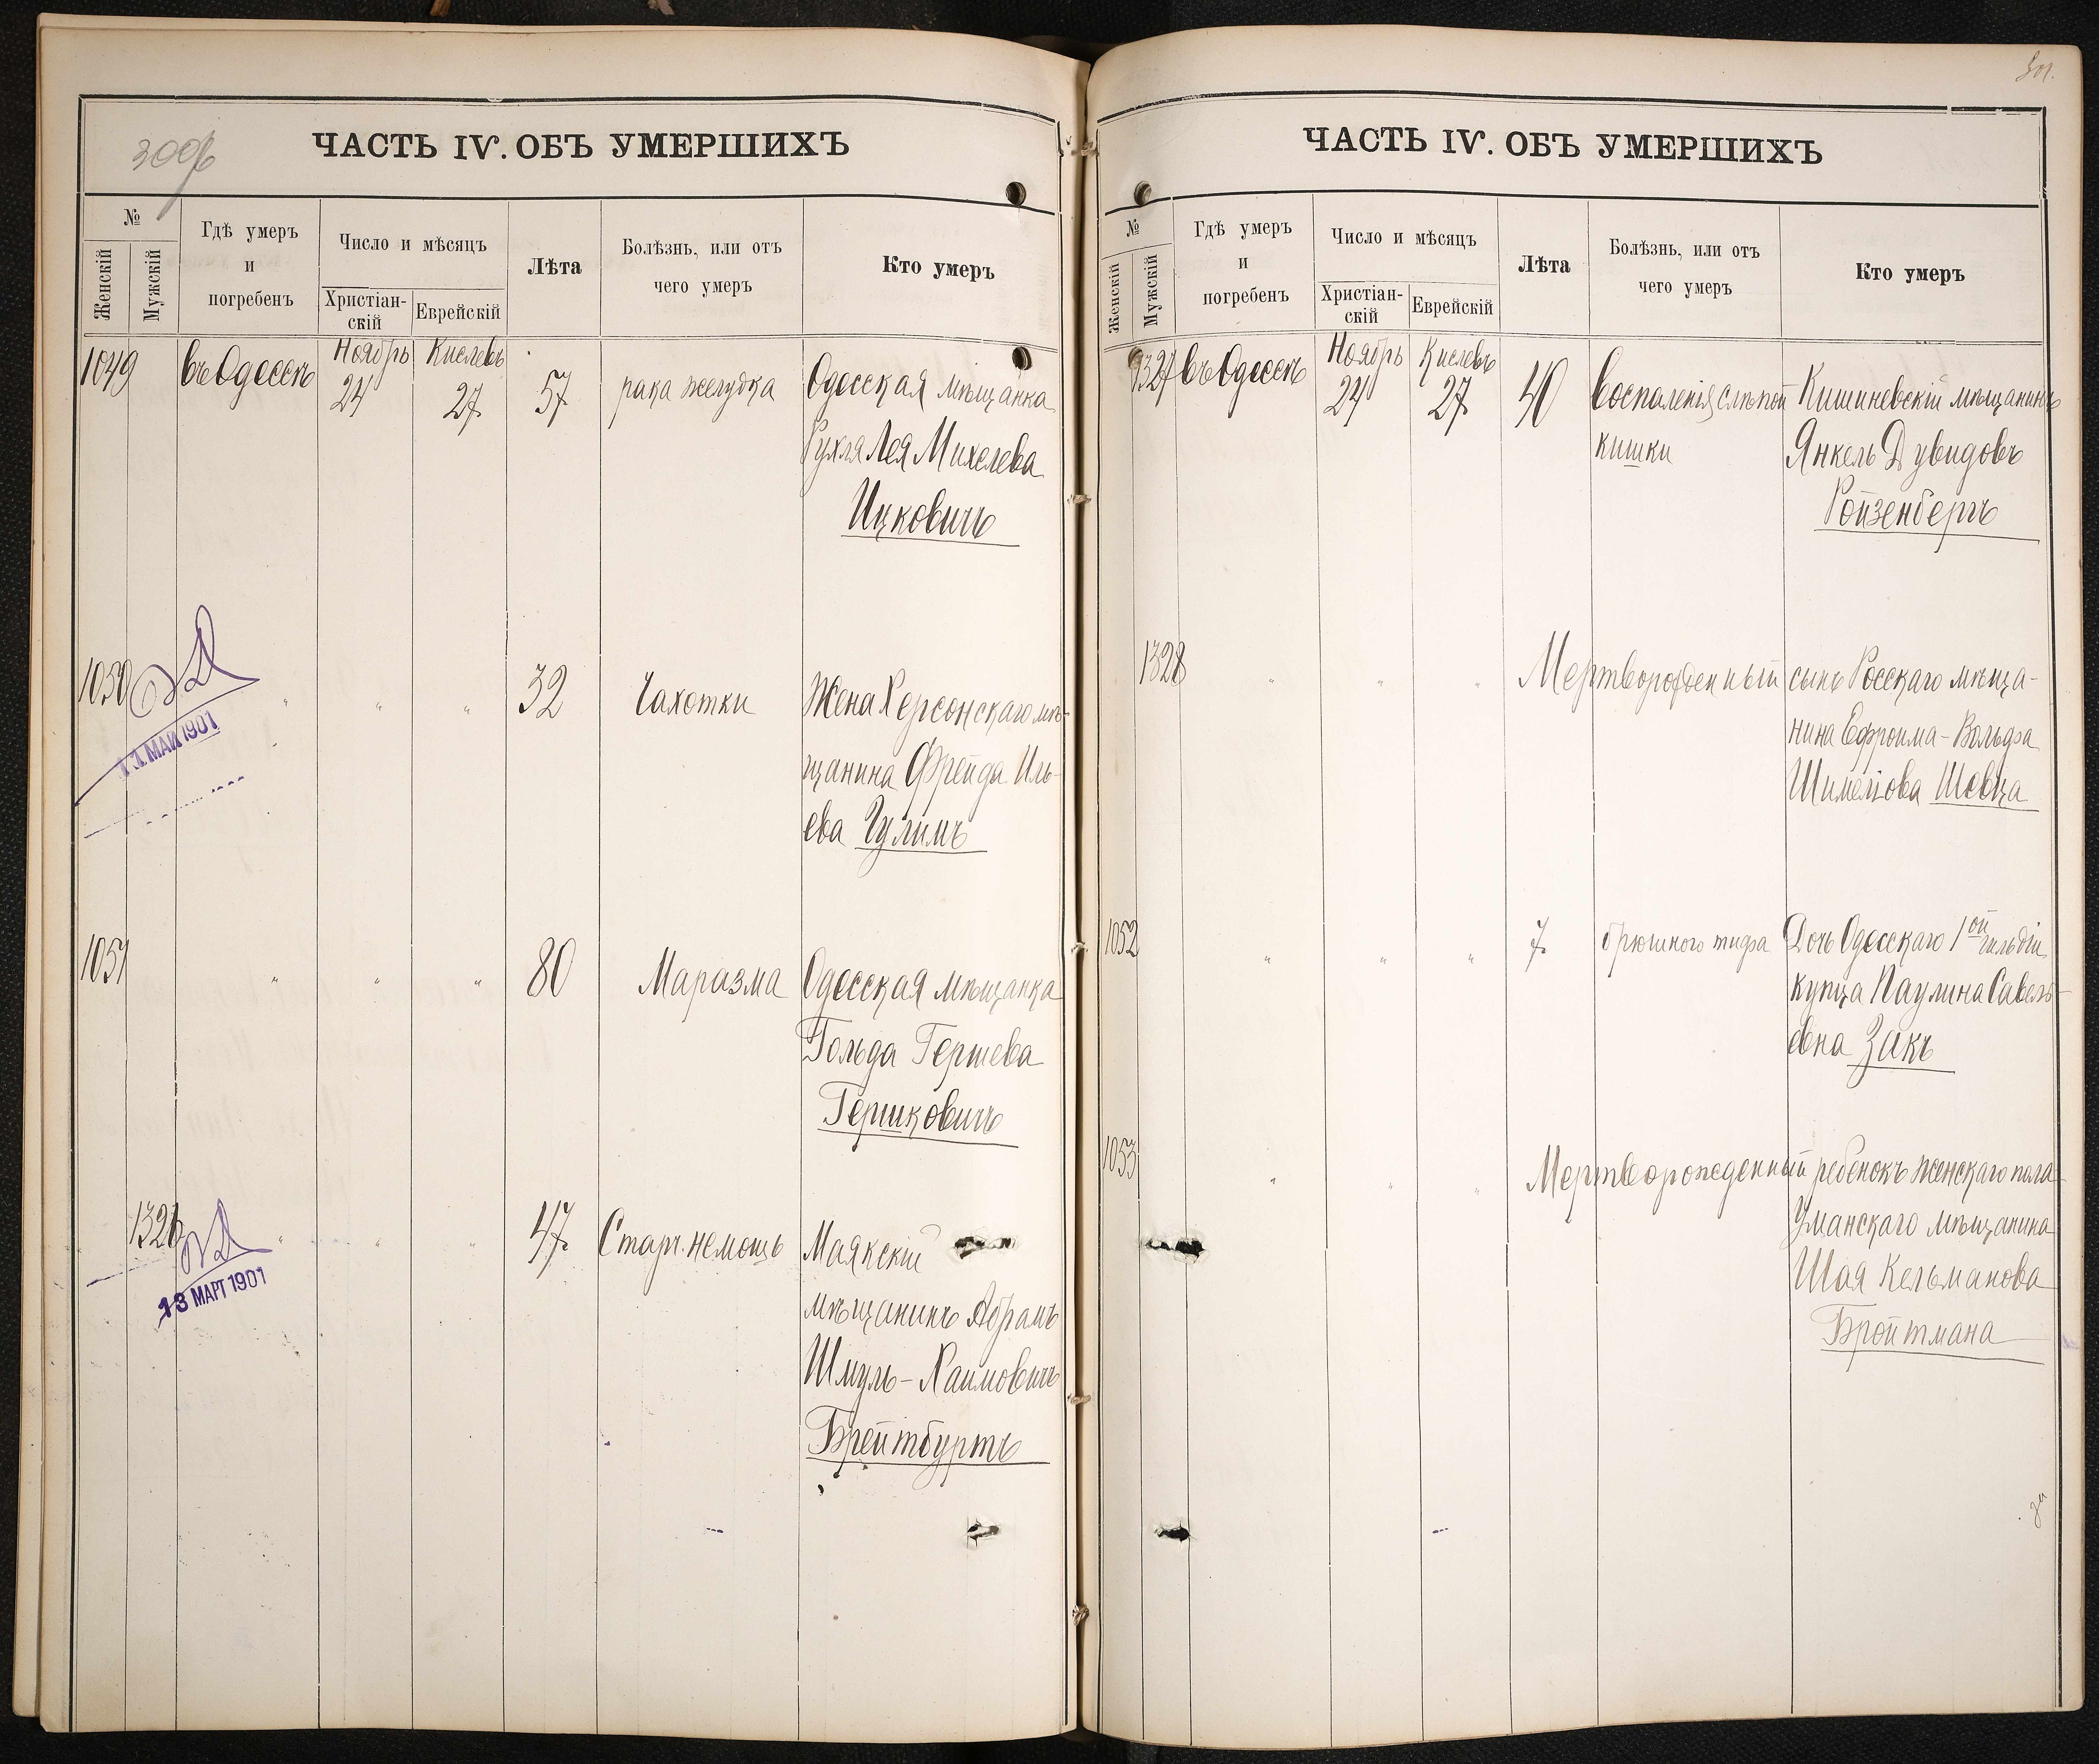 300
ЧАСТЬ IV. ОБЪ УМЕРШИХЪ
№
Женскій
Мужскій
Гдѣ умеръ
и
погребенъ
Число и мѣсяцъ
Христіан-
скій
Еврейскій
Лѣта
Болѣзнь, или отъ
чего умеръ
Кто умеръ
1049 въ Одессѣ Ноябрь 24 Кислевъ 27 57 рака желудка Одесская мѣщанка
Рухля Лея Михелева
Ицковичъ
1050 " " " 32 Чахотки Жена Херсонскаго мѣ-
щанина Фрейда Иль-
ева Гулимъ
11 МАЙ 1901
1051 " " " 80 Маразма Одесская мѣщанка
Гольда Гершева
Гершковичъ
1326 " " " 47 Старч. немощь Маякскій
мѣщанинъ Абрамъ
Шмуль-Хаимовичъ
Брейтбуртъ
13 МАРТ 1901
301.
ЧАСТЬ IV. ОБЪ УМЕРШИХЪ
№
Женскій
Мужскій
Гдѣ умеръ
и
погребенъ
Число и мѣсяцъ
Христіан-
скій
Еврейскій
Лѣта
Болѣзнь, или отъ
чего умеръ
Кто умеръ
1327 въ Одессѣ Ноябрь 24 Кислевъ 27 40 Воспаленія слѣпой Кишиневскій мѣщанинъ
кишки Янкель Дувидовъ
Ройзенбергъ
1328 " " " Мертворожденный сынъ Росскаго мѣща-
нина Ефроима-Вольфа
Шимелiова Шевца
1052 " " " 7 брюшного тифа Дочь Одесскаго 1ой гильдіи
купца Паулина Савель-
евна Закъ
1053 " " " Мертворожденный ребенокъ женскаго пола
Уманскаго мѣщанина
Шая Кельманова
Бройтмана